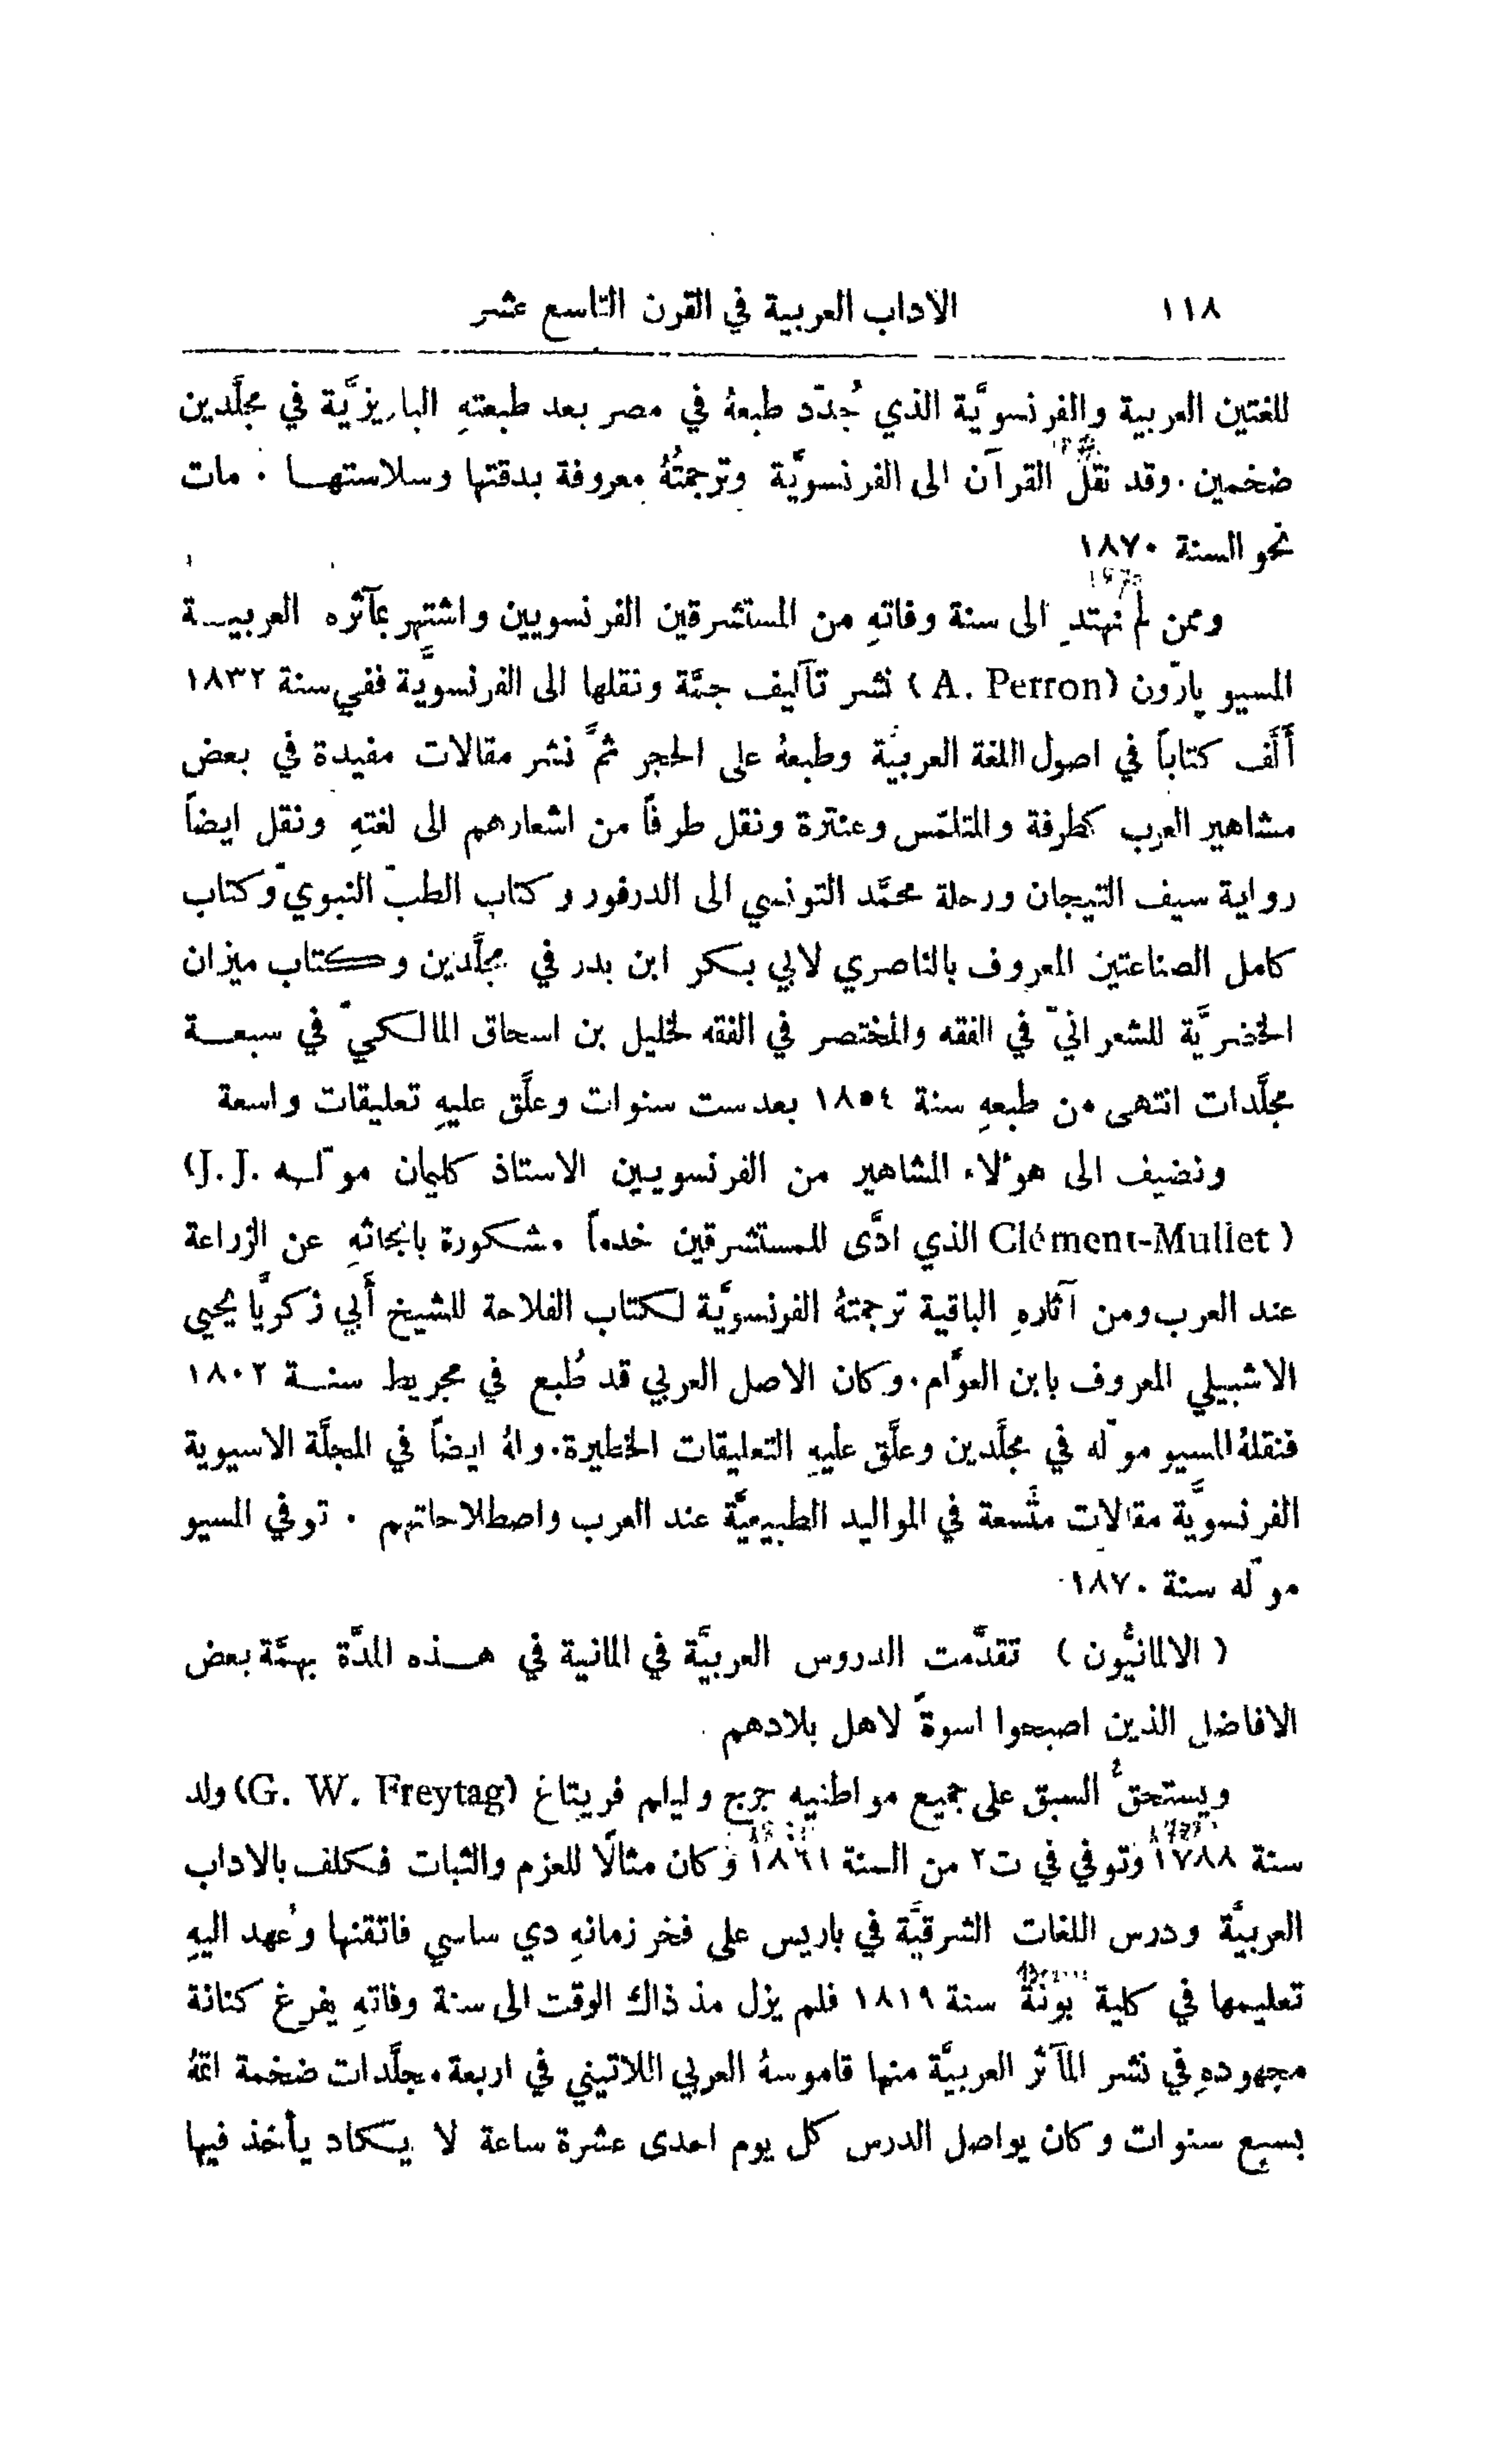 ١١٨ الاداب العربية في القرن التاسع عشر
للغتين العربية والفرنسويَّة الذي جُدّد طبعهُ في مصر بعد طبعتهِ الباريزيَّة في مجلَّدين
ضخمين. وقد نقل القرآن الى الفرنسويَّة وترجمتُهُ معروفة بدقتها وسلاستهـا. مات
نحو السنة ١٨٧٠
وممن لم نهتدِ الى سنة وفاتهِ من المستشرقين الفرنسويين واشتهر بمآثره العربيـة
المسيو پارّون (A. Perron) نشر تآليف جمَّة ونقلها الى الفرنسويَّة ففي سنة ١٨٣٢
أَلَّف كتاباً في اصول اللغة العربيَّة وطبعهُ على الحجر ثمَّ نشر مقالات مفيدة في بعض
مشاهير العرب كطرفة والمتلمّس وعنترة ونقل طرفًا من اشعارهم الى لغتهِ ونقل ايضاً
رواية سيف التيجان ورحلة محمَّد التونسي الى الدرفور وكتاب الطبّ النبويّ وكتاب
كامل الصناعتين المعروف بالناصري لابي بكر ابن بدر في مجلَّدين وكتاب ميزان
الخضريَّة للشعرانيّ في الفقه والمختصر في الفقه لخليل بن اسحاق المالكيّ في سبعـة
مجلَّدات انتهى من طبعهِ سنة ١٨٥٤ بعد ست سنوات وعلَّق عليهِ تعليقات واسعة
ونضيف الى هوٴلاء المشاهير من الفرنسويين الاستاذ كليمان موّله (J.J.
Clément-Mullet) الذي ادَّى للمستشرقين خدماً مشكورة بابحاثهِ عن الزراعة
عند العرب ومن آثارهِ الباقية ترجمتهُ الفرنسويَّة لكتاب الفلاحة للشيخ أَبي زكريَّا يحيى
الاشبيلي المعروف بابن العوَّام. وكان الاصل العربي قد طُبع في مجريط سنـة ١٨٠٢
فنقلهُ المسيو موّله في مجلَّدين وعلَّق عليهِ التعليقات الخطيرة. ولهُ ايضاً في المجلَّة الاسيوية
الفرنسويَّة مقالات متَّسعة في المواليد الطبيعيَّة عند العرب واصطلاحاتهم. توفي المسيو
موّله سنة ١٨٧٠
(الالمانيُّون) تقدَّمت الدروس العربيَّة في المانية في هـذه المدَّة بهمَّة بعض
الافاضل الذين اصبحوا اسوةً لاهل بلادهم
ويستحقُّ السبق على جميع مواطنيه جرج وليلم فريتاغ (G. W. Freytag) ولد
سنة ١٧٨٨ وتوفي في ت٢ من السنة ١٨٦١ وكان مثالًا للعزم والثبات فكلف بالاداب
العربيَّة ودرس اللغات الشرقيَّة في باريس على فخر زمانهِ دي ساسي فاتقنها وعُهد اليهِ
تعليمها في كلية بونة سنة ١٨١٩ فلم يزل مذ ذاك الوقت الى سنة وفاتهِ يفرغ كنانة
مجهودهِ في نشر المآثر العربيَّة منها قاموسهُ العربي اللاتيني في اربعة مجلَّدات ضخمة اتمَّهُ
بسبع سنوات وكان يواصل الدرس كل يوم احدى عشرة ساعة لا يكاد يأخذ فيها